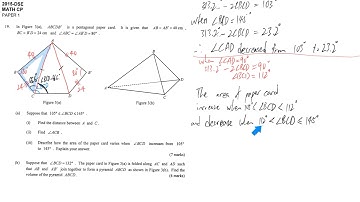 2015-DSE
MATH CP
PAPER 1
19. In Figure 3(a), ABCDB' is a pentagonal paper card. It is given that AB = AB' = 40 cm,
BC = B'D = 24 cm and ∠ABC = ∠AB'D = 80°.
Figure 3(a)
Figure 3(b)
(a) Suppose that 105° ≤ ∠BCD ≤ 145°.
(i) Find the distance between A and C.
(ii) Find ∠ACB.
(iii) Describe how the area of the paper card varies when ∠BCD increases from 105°
to 145°. Explain your answer.
(7 marks)
(b) Suppose that ∠BCD = 132°. The paper card in Figure 3(a) is folded along AC and AD such
that AB and AB' join together to form a pyramid ABCD as shown in Figure 3(b). Find the
volume of the pyramid ABCD.
(6 marks)
when ∠BCD = 145°
313.2 - 2∠BCD = 23.2°
∴ ∠CAD decreased from 103° to 23.2°
when ∠CAD = 90°
313.2 - 2∠BCD = 90°
∠BCD = 112°
The area of paper card
increase when
and decrease when 112° < ∠BCD ≤ 145°